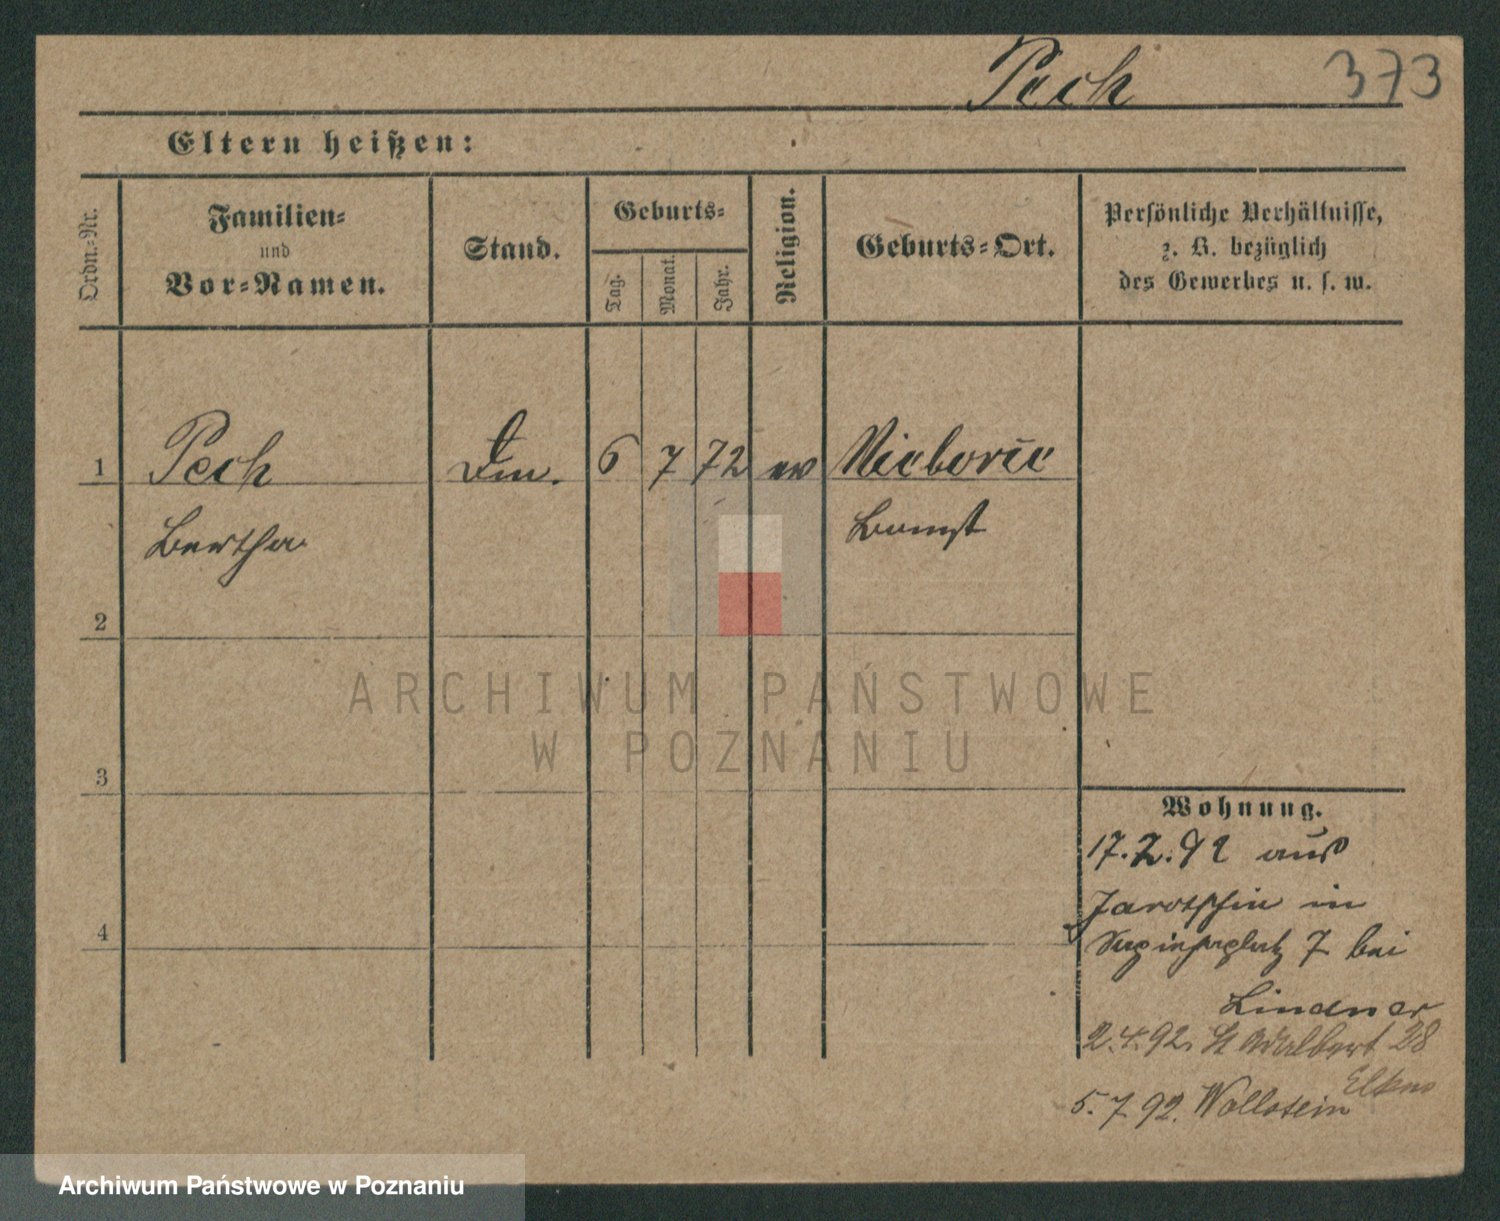 Pech 373
Eltern heißen:
Ordn.=Nr.
Familien=
und
Vor=Namen.
Stand.
Geburts=
Tag.
Monat.
Jahr.
Religion.
Geburts=Ort.
Persönliche Verhältnisse,
z. B. bezüglich
des Gewerbes u. s. w.
1 Pech 6 7 72 ev
Bertha Bomst
2
ARCHIWUM PAŃSTWOWE
W POZNANIU
3
Wohnung.
17.2.92 aus
Jarotschin in
7 bei
4
Lindner
2.4.92. St Adalbert 28
5.7.92. Wollstein
Archiwum Państwowe w Poznaniu